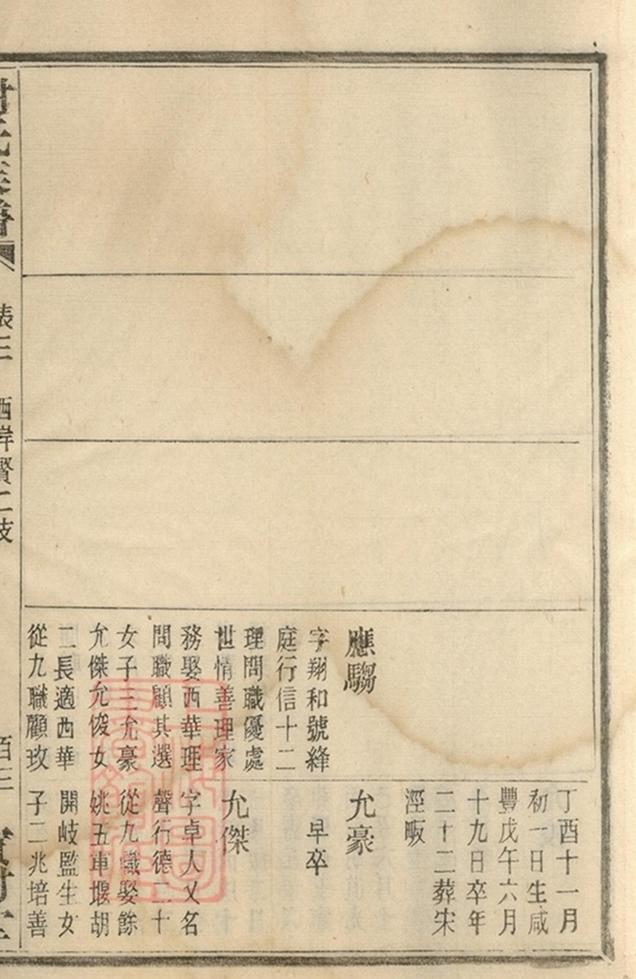 丁酉十一月
初一日生咸
豐戊午六月
十九日卒年
二十二葬宋
涇畈
應騶
字翔和號絳
庭行信十二
理問職優處
世情善理家
務娶西華理
問職顧其選
女子三允豪
允傑允俊女
二長適西華
從九職顧玫
允豪
早卒
允傑
字卓人又名
聲行德二十
從九職娶餘
姚五車堰胡
開岐監生女
子二兆培善
表三 西岸賢二支
百三